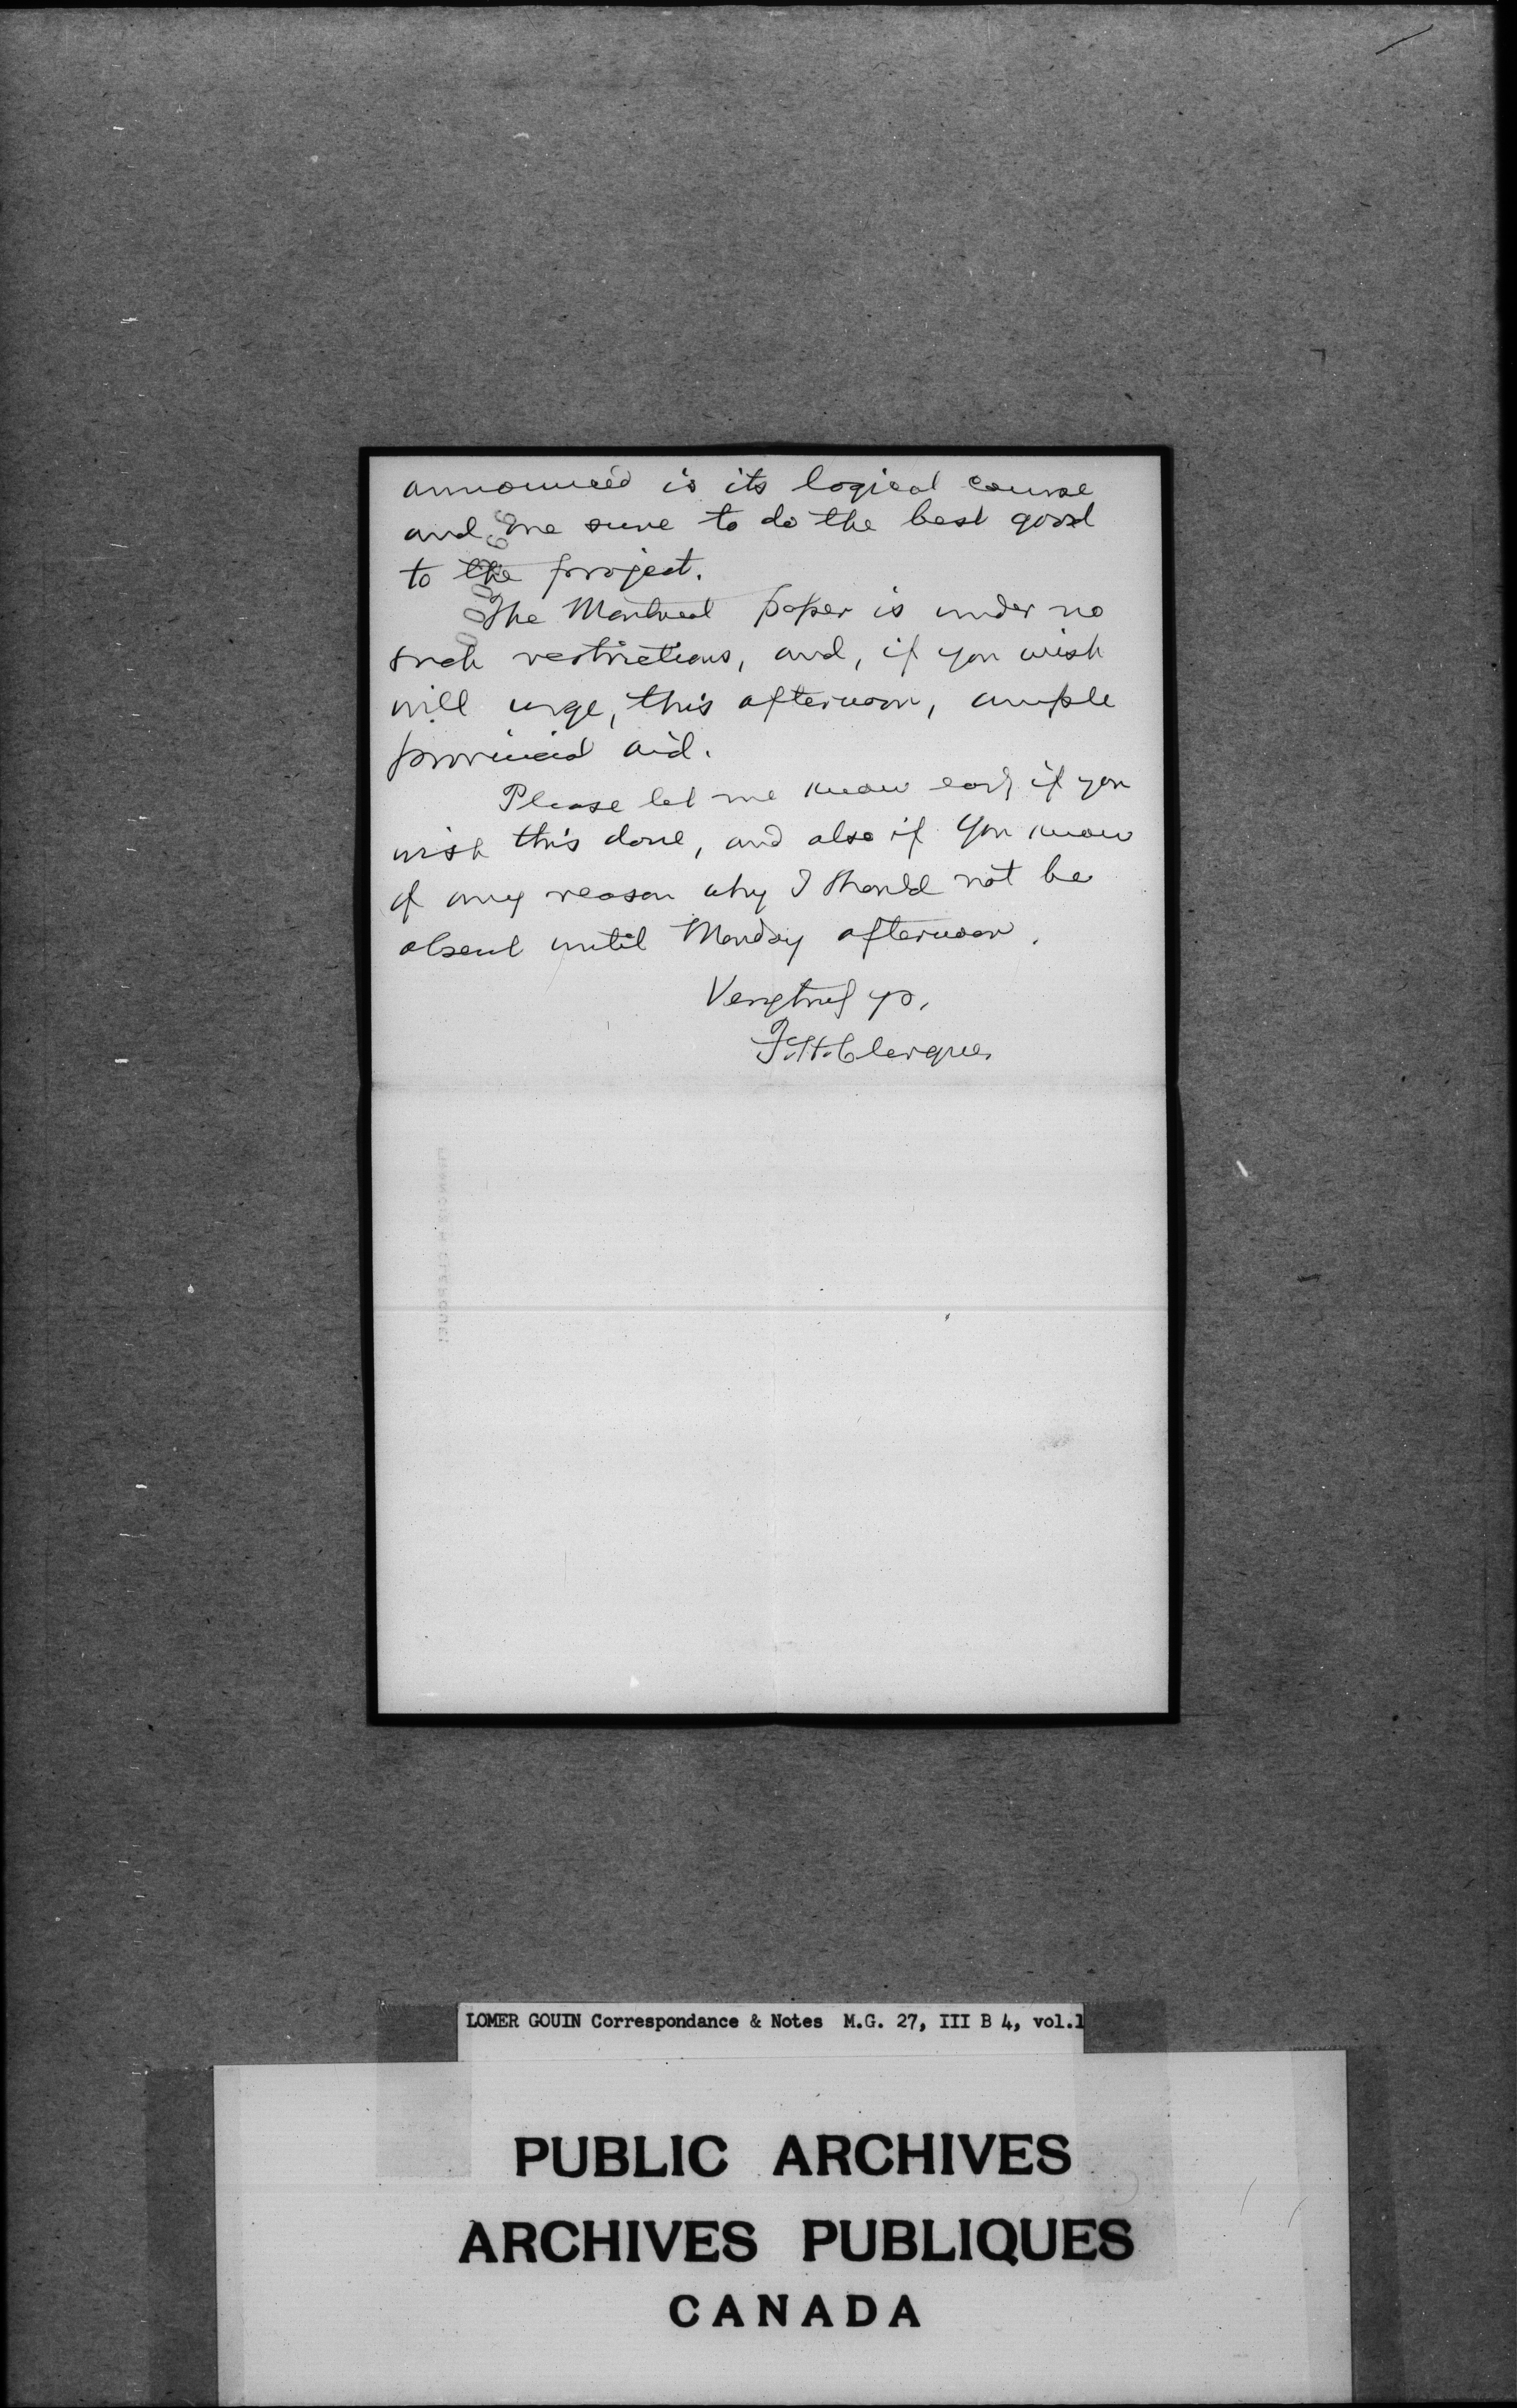 announced is its logical course
and one sure to do the best good
to the project.
The Montreal paper is under no
such restrictions, and, if you wish
will urge, this afternoon, ample
provincial aid.
Please let me know early if you
wish this done, and also if you know
of any reason why I should not be
absent until Monday afternoon.
Very truly yrs,
F.H. Clergue.
LOMER GOUIN Correspondance & Notes M.G. 27, III B 4, vol.1
PUBLIC ARCHIVES
ARCHIVES PUBLIQUES
CANADA